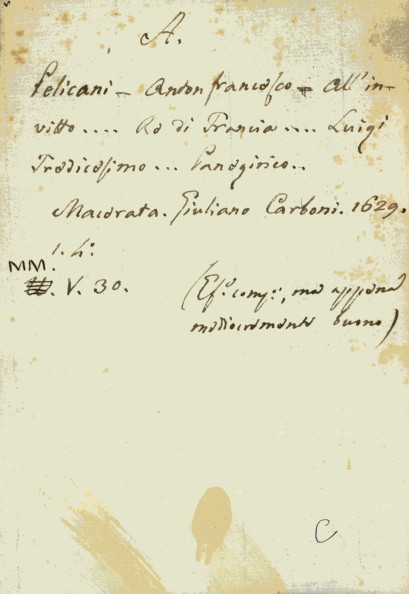 A.
Pelicani - Anton francesco - All'in-
vitto.... Re di Francia.... Luigi
Tredicesimo... Panegirico..
Macerata. Giuliano Carboni. 1629.
1. 4°.
MM.
V. 30.
(Es.e comp.o, ma appena
mediocremente buono)
C